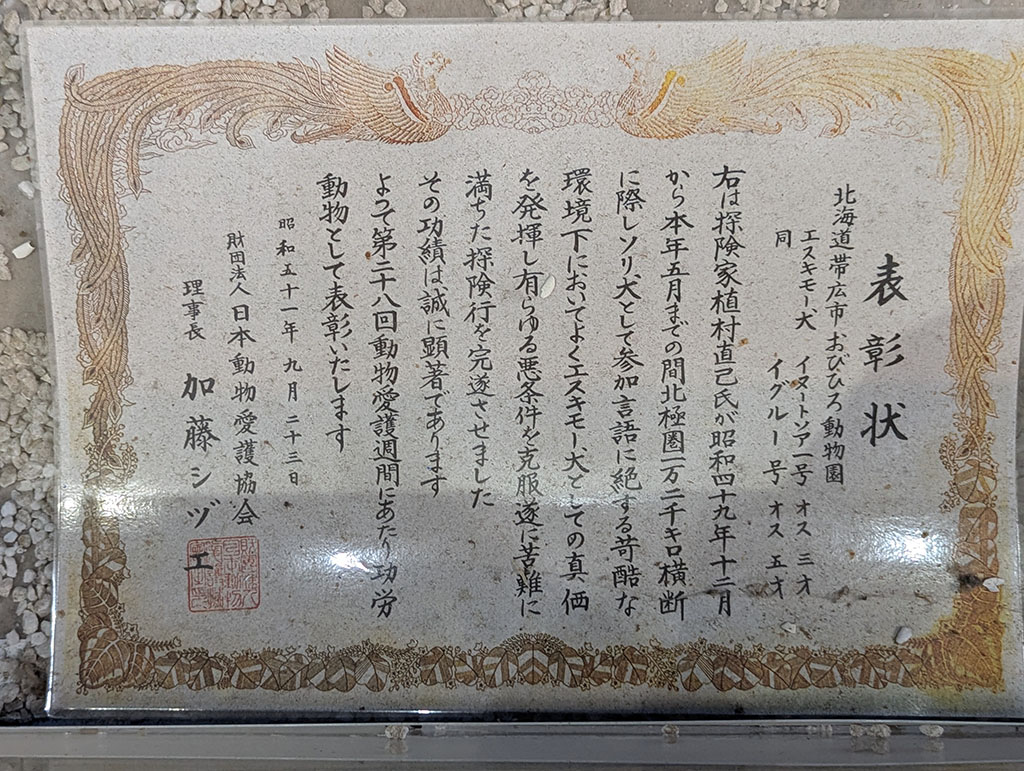 表彰状
北海道帯広市おびひろ動物園
エスキモー犬 イヌートソア一号 オス 三才
同 イグルー号 オス 五才
右は探険家植村直己氏が昭和四十九年十二月
から本年五月までの間北極圏一万二千キロ横断
に際しソリ犬として参加言語に絶する苛酷な
環境下においてよくエスキモー犬としての真価
を発揮し有らゆる悪条件を克服遂に苦難に
満ちた探険行を完遂させました
その功績は誠に顕著であります
よって第二十八回動物愛護週間にあたり功労
動物として表彰いたします
昭和五十一年九月二十三日
財団法人日本動物愛護協会
理事長 加藤シヅエ